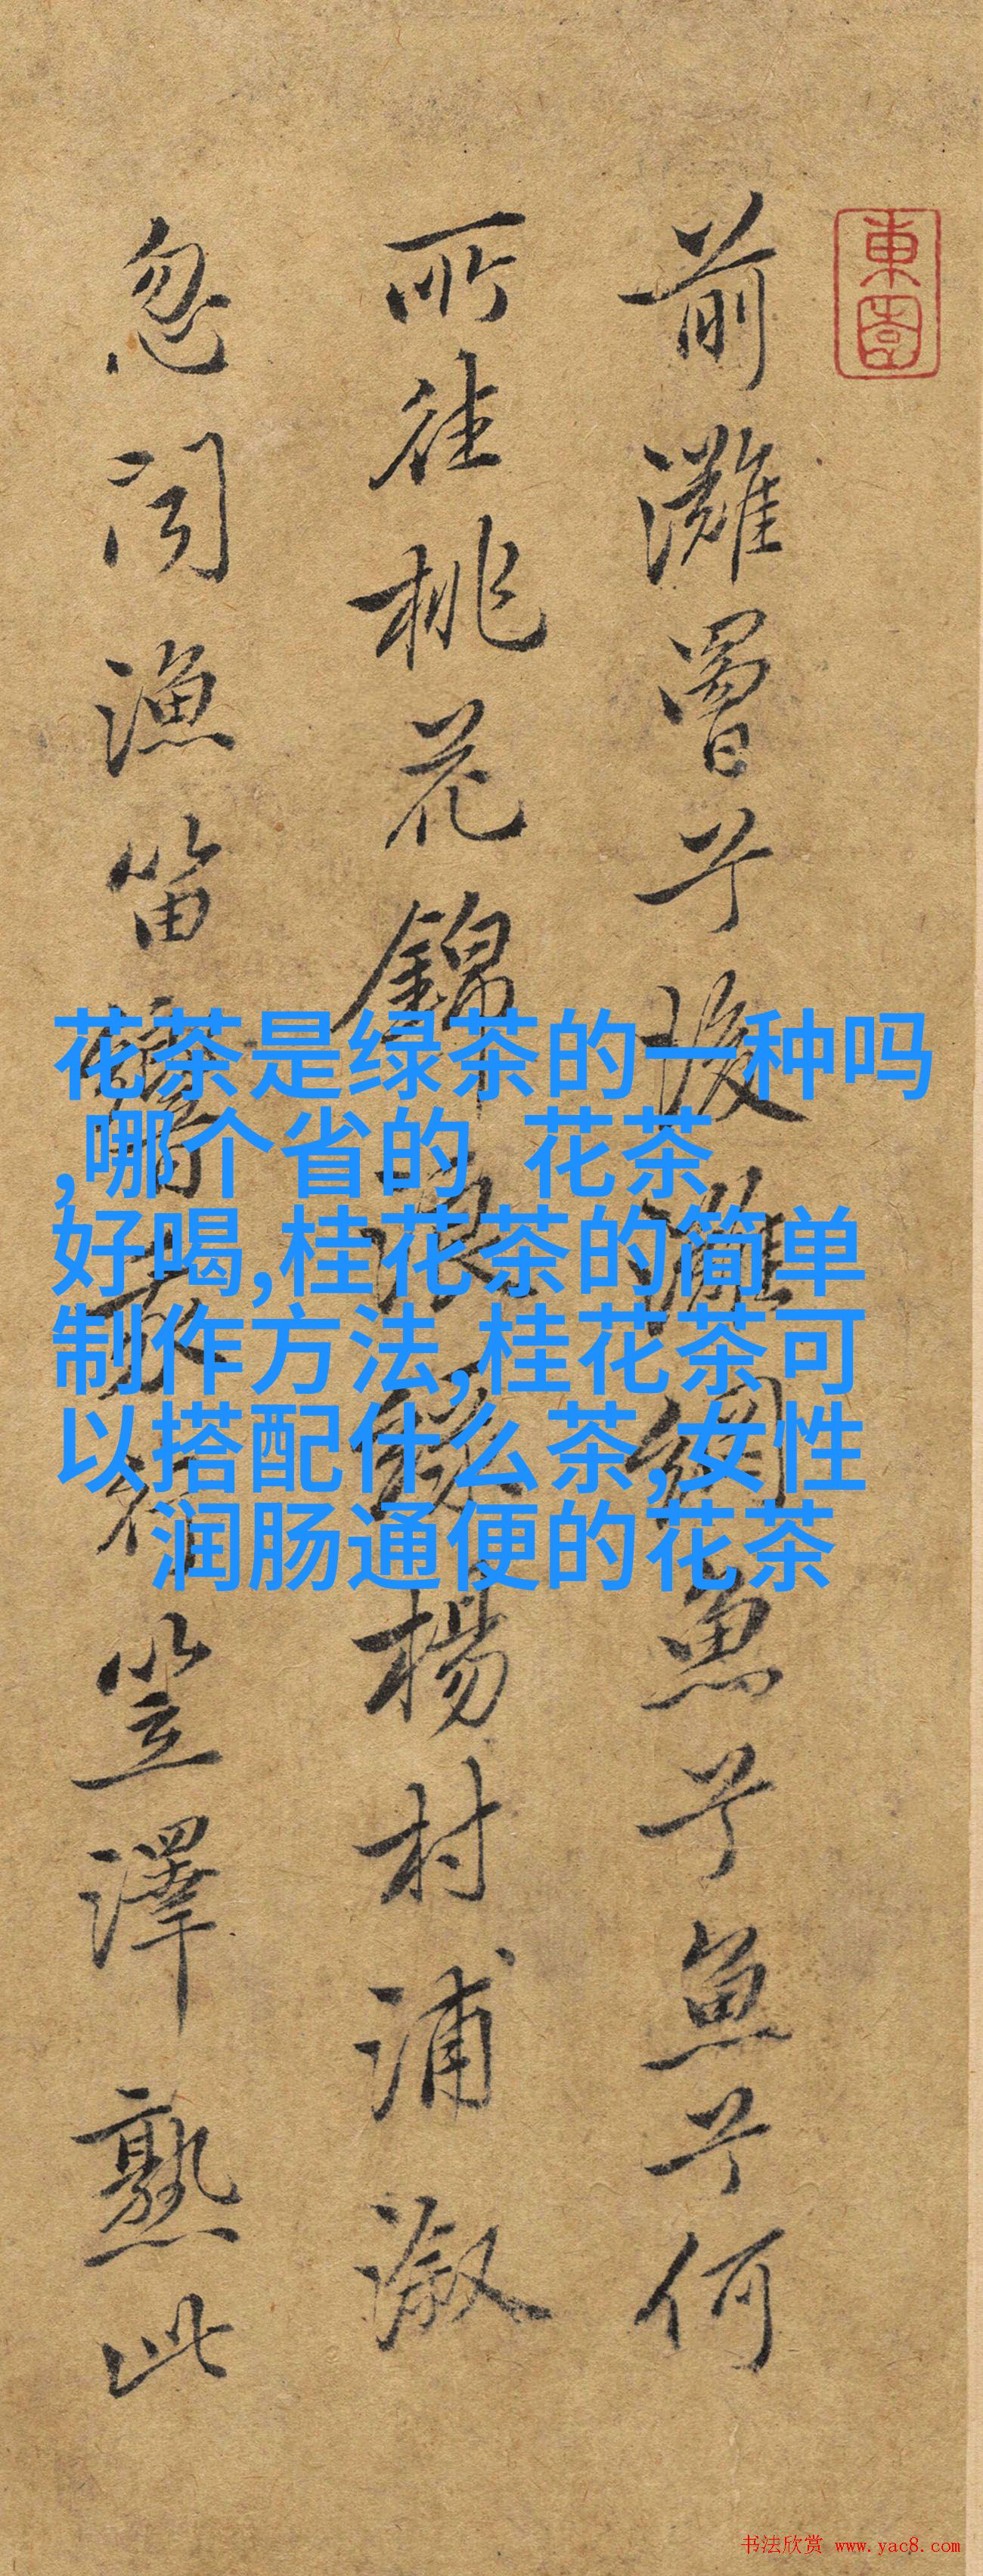 東園
前灘罾兮後灘網魚兮魚兮何
所往桃花錦浪綠楊村浦溆
忽聞漁笛響我行笠澤熟此
花茶是绿茶的一种吗
,哪个省的 花茶
好喝,桂花茶的简单
制作方法,桂花茶可
以搭配什么茶,女性
润肠通便的花茶
书法欣赏 www.yac8.com